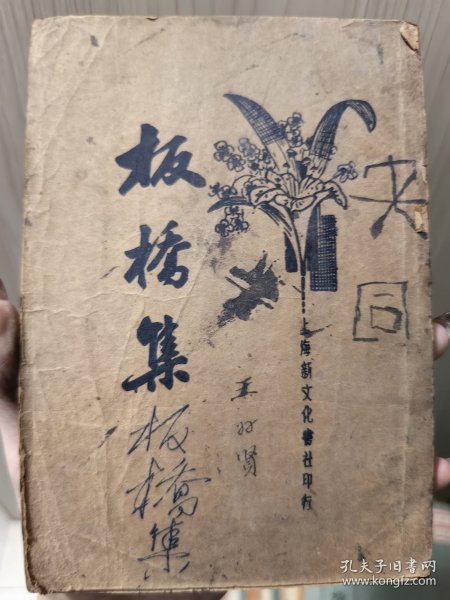 板橋集
板橋集
上海新文化書社印行
孔夫子旧书网
www.kongfz.com